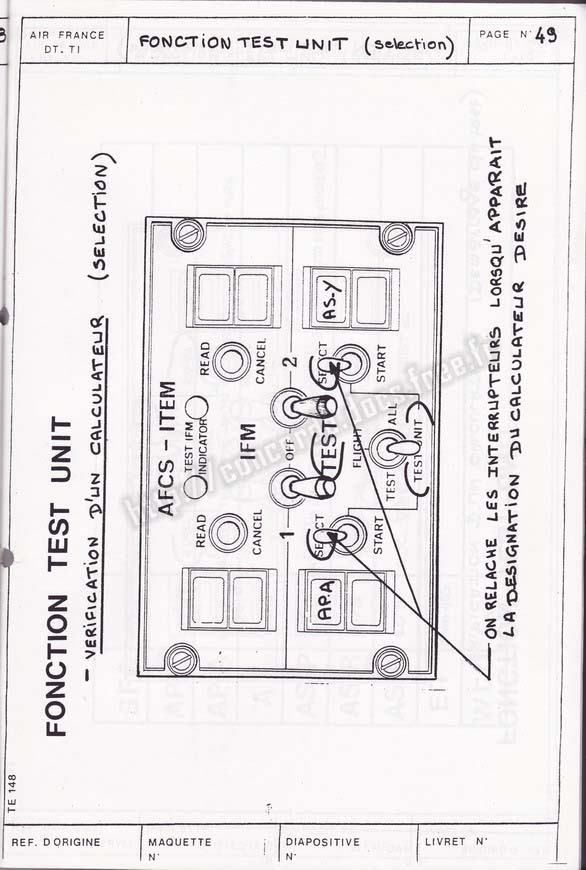 AIR FRANCE
DT. TI
FONCTION TEST UNIT (selection)
PAGE N° 49
FONCTION TEST UNIT
- VERIFICATION D'UN CALCULATEUR (SELECTION)
AFCS - ITEM
READ
CANCEL
TEST IFM
INDICATOR
READ
CANCEL
IFM
1
OFF
2
TEST
AP.A
AS-Y
SELECT
START
SELECT
START
FLIGHT
TEST
ALL
TEST UNIT
ON RELACHE LES INTERRUPTEURS LORSQU'APPARAIT
LA DESIGNATION DU CALCULATEUR DESIRE
TE 148
REF. D'ORIGINE
MAQUETTE
N°
DIAPOSITIVE
N°
LIVRET N°